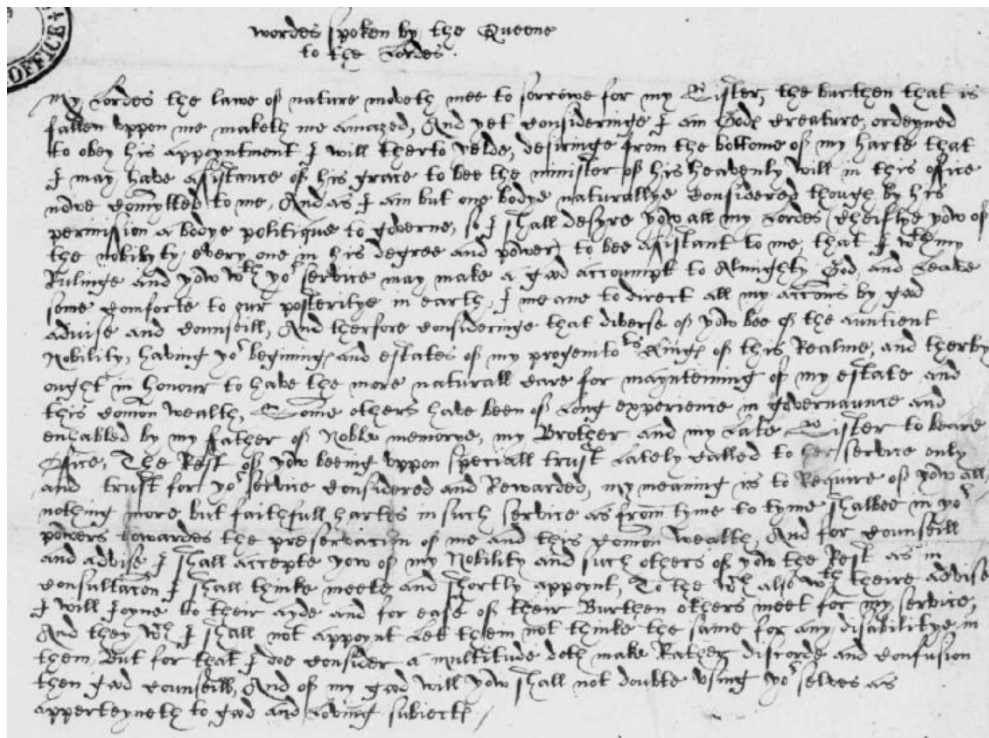 OFFICE
wordes spoken by the Queene
to the Lordes.
My Lordes the lawe of nature moveth mee to sorrowe for my Sister, the burthen that is
fallen uppon me maketh me amazed, And yet consideringe I am Gods creature, ordeyned
to obey his appoyntment I will therto yelde, desiringe from the bottome of my harte that
I may have assistance of his grace to bee the minister of his heavenly will in this office
nowe comytted to me, And as I am but one bodye naturallye considered though by his
permission a bodye politique to governe, so I shall desyre yow all my Lordes cheiflye yow of
the nobility, every one in his degree and power, to bee assistant to me, that I wth my
Rulinge and yow wth yor service may make a good accoumpt to Almighty God, and Leave
some comforte to our posteritye in earth, I meane to direct all my accons by good
advise and counseill, And therfore consideringe that diverse of yow bee of the auntient
Nobility, having yor beginings and estates of my progenitors Kings of this Realme, and therby
ought in honour to have the more naturall care for maynteining of my estate and
this comon wealth, Some others have been of Long experience in governaunce and
enhabled by my father of Noble memorye, my Brother and my Late Sister to beare
Office, The Rest of yow beeing uppon speciall trust Lately called to her service only
and trust for yor service considered and Rewarded, my meaning is to Require of yow all,
nothing more but faithfull hartes in such service as from tyme to tyme shalbee in yor
powers towardes the preservacon of me and this comon wealth, And for counseill
and advise I shall accepte yow of my Nobility and such others of yow the Rest as in
consultacon I shall thinke meete and shortly appoynt, To the wch also wth theire advise
I will Joyne to their ayde and for ease of their Burthen others meet for my service,
And they wch I shall not appoynt Let them not thinke the same for any disabilitye in
them, But for that I doe consider a multitude doth make Rather discorde and confusion
then good counseill, And of my good will yow shall not doubte using yor selves as
apperteyneth to good and Loving subiects /